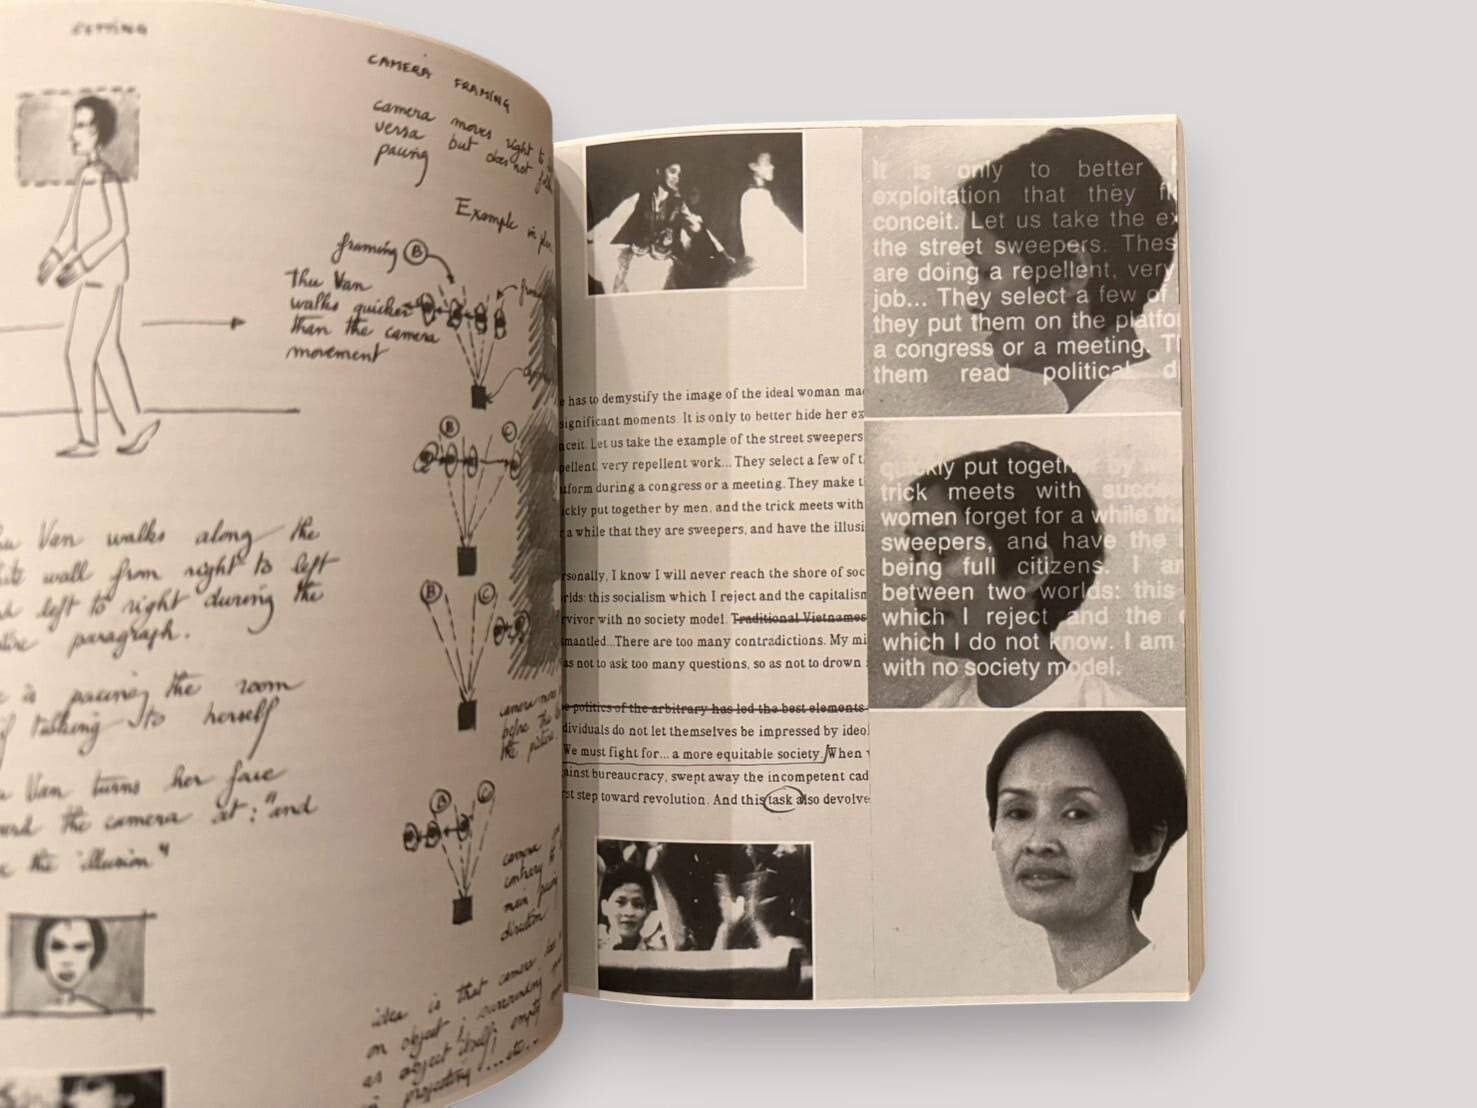 CUTTING
CAMERA FRAMING
camera moves right to
versa but does not
pacing
Example in
framing B
Thu Van
walks quicker
than the camera
movement
B C
B C
B C
Van walks along the
wall from right to left
left to right during the
paragraph.
is pacing the room
if talking to herself
Van turns her face
the camera at: "and
the "illusion"
camera
before the
the picture.
camera
contrary to
main pacing
direction
idea is that camera
on object, surrounding
as object itself, empty
projecting ... etc..
e has to demystify the image of the ideal woman ma
significant moments. It is only to better hide her ex
nceit. Let us take the example of the street sweepers
pellent, very repellent work... They select a few of t
tform during a congress or a meeting. They make t
ickly put together by men, and the trick meets with
r a while that they are sweepers, and have the illusi
rsonally, I know I will never reach the shore of soc
rlds: this socialism which I reject and the capitalism
rvivor with no society model. Traditional Vietnames
smantled...There are too many contradictions. My mi
as not to ask too many questions, so as not to drown
e politics of the arbitrary has led the best elements
dividuals do not let themselves be impressed by ideo
We must fight for... a more equitable society. When
ainst bureaucracy, swept away the incompetent cad
rst step toward revolution. And this task also devolve
It is only to better
exploitation that they
conceit. Let us take the ex
the street sweepers. Thes
are doing a repellent, very
job... They select a few of
they put them on the platfo
a congress or a meeting. T
them read political d
quickly put together by
trick meets with succes
women forget for a while tha
sweepers, and have the
being full citizens. I am
between two worlds: this
which I reject and the
which I do not know. I am
with no society model.